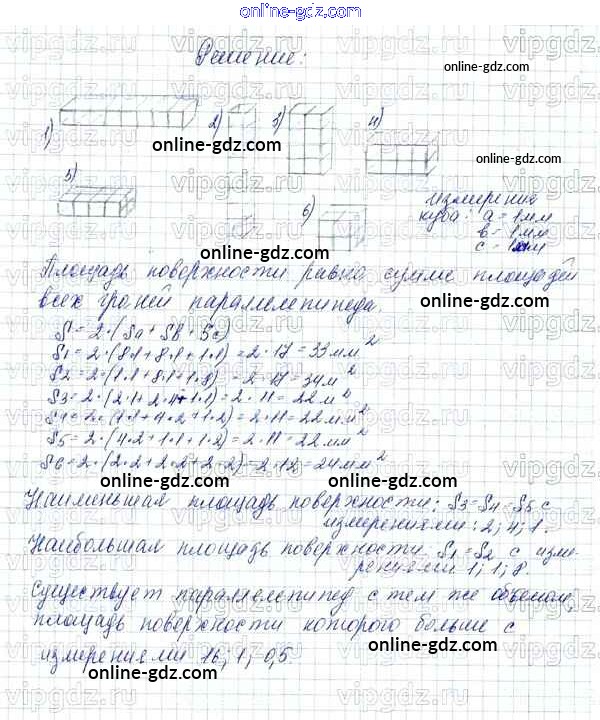 online-gdz.com
Решение:
online-gdz.com
1) 2) 3) 4)
online-gdz.com
online-gdz.com
5)
6)
измерение
куба: a = 1 мм
b = 1 мм
c = 1 мм
online-gdz.com
online-gdz.com
Площадь поверхности равна сумме площадей
всех граней параллелепипеда.
online-gdz.com
S = 2·(Sa + Sb + Sc)
S1 = 2·(8·1+8·1+1·1) = 2·17 = 33мм²
S2 = 2·(1·1+8·1+1·8) = 2·17 = 34м²
S3 = 2·(2·1+2·4+1·1) = 2·11 = 22м²
S4 = 2·(1·1+4·2+1·2) = 2·11 = 22мм²
S5 = 2·(4·2+1·1+1·2) = 2·11 = 22мм
S6 = 2·(2·2+2·2+2·2) = 2·12 = 24мм²
online-gdz.com
online-gdz.com
online-gdz.com
Наименьшая площадь поверхности: S3=S4=S5 с
измерениями: 2; 4; 1.
online-gdz.com
Наибольшая площадь поверхности: S1=S2 с изме-
рениями 1; 1; 8.
online-gdz.com
Существует параллелепипед с тем же объемом,
площадь поверхности которого больше с
измерениями 16; 1; 0,5.
online-gdz.com
online-gdz.com